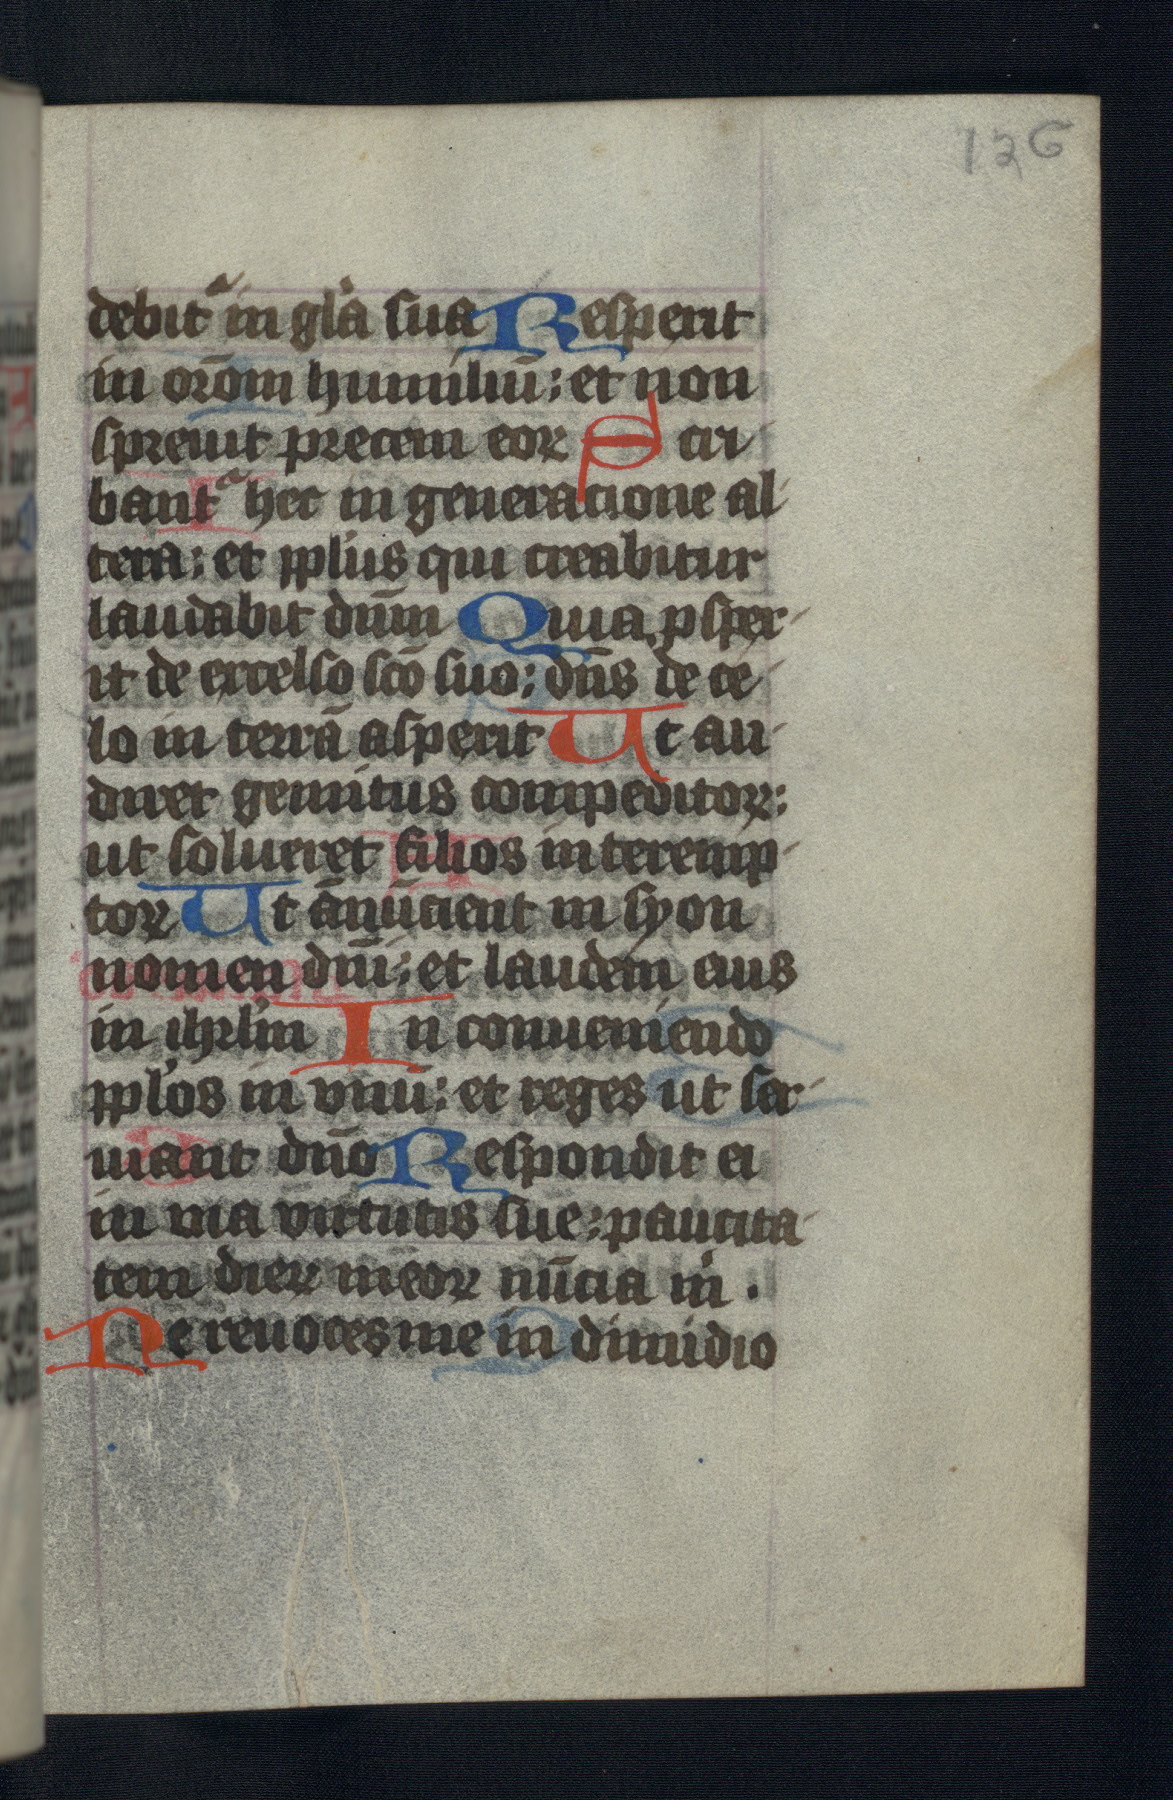 126
debit᷑ in gl̓a sua Respexit
in or̄om humiliū: et non
spreuit precem eoꝝ Scri
bant᷑ hec in generacione al
tera: et ppl̓us qui creabitur
laudabit dn̄m Quia ꝓspex
it de excelso sc̄o suo: dn̄s de ce
lo in terrā aspexit Ut au
diret gemitus compeditoꝝ:
ut solueret filios interemp
toꝝ Ut ānūcient in syon
nomen dn̄i: et laudem eius
in ihrl̓m In conueniendo
ppl̓os in vnū: et reges ut ser
uiant dn̄o Respondit ei
in via virtutis sue: paucita
tem dieꝝ meoꝝ nūcia m̓ .
Ne reuoces me in dimidio